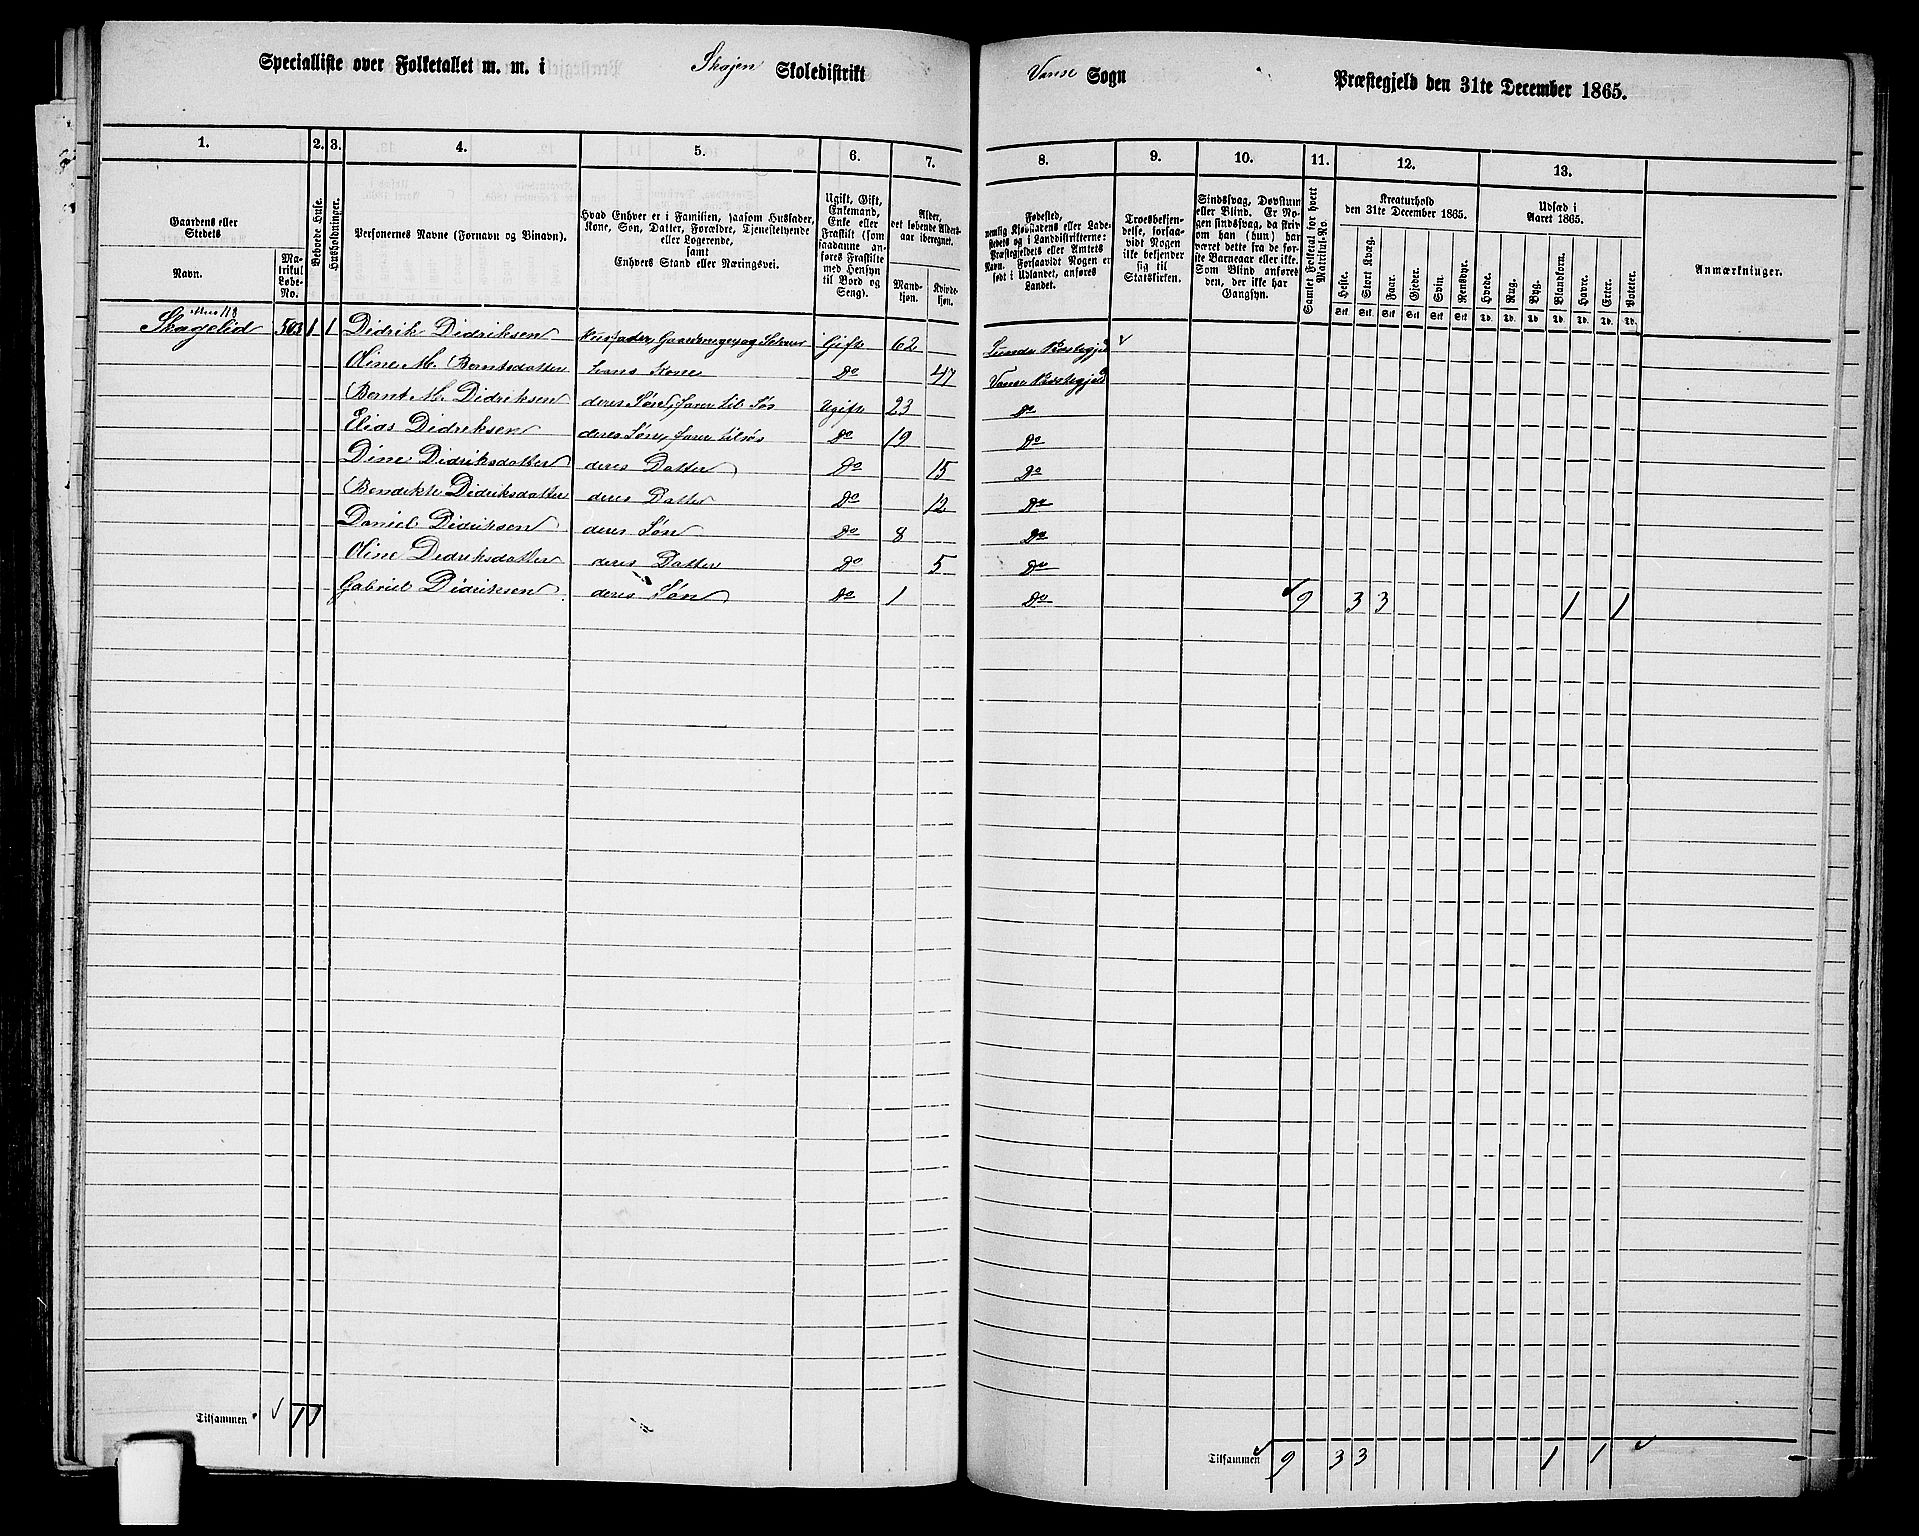 Specialliste over Folketallet m. m. i Skojen Skoledistrikt Vanse Sogn Præstegjeld den 31te December 1865.
1. 2. 3. 4. 5. 6. 7. 8. 9. 10. 11. 12. 13.
Gaardens eller Stedets
Navn.
Matrikul Løbe-No.
Beboede Huse.
Husholdninger.
Personernes Navne (Fornavn og Binavn).
Hvad Enhver er i Familien, saasom Husfader, Kone, Søn, Datter, Forældre, Tjenestetyende eller Logerende,
samt
Enhvers Stand eller Næringsvei.
Ugift, Gift, Enkemand, Enke eller Fraskilt (som saadanne anføres Fraskilte med Hensyn til Bord og Seng).
Alder, det løbende Alders-aar iberegnet.
Mand-kjøn. Kvinde-kjøn.
Fødested, nemlig Kjøbstadens eller Ladestedets og i Landdistrikterne: Præstegjeldets eller Amtets Navn. Forsaavidt Nogen er født i Udlandet, anføres Landet.
Troesbekjendelse, forsaavidt Nogen ikke bekjender sig til Statskirken.
Sindssvag, Døvstum eller Blind. Er Nogen sindssvag, da skrives om han (hun) har været dette fra de første Barneaar eller ikke. Som Blind anføres den, der ikke har Gangsyn.
Samlet Folketal for hvert Matrikul-No.
Kreaturhold den 31te December 1865.
Heste. Stort Kvæg. Faar. Gjeder. Svin. Rensdyr.
Stk. Stk. Stk. Stk. Stk. Stk.
Udsæd i Aaret 1865.
Hvede. Rug. Byg. Blandkorn. Havre. Erter. Poteter.
Td. Td. Td. Td. Td. Td. Td.
Anmærkninger.
Skagelid 503 1 1 Didrik Didriksen Husfader, Gaardbruger og Gift 62 Lunde Præstegjeld
Oline M. Berntsdatter hans Kone Do 47 Vanse Præstegjeld
Bernt M. Didriksen deres Søn, farer til Søs Ugift 23 Do
Elias Didriksen deres Søn, farer tilsøs Do 19 Do
Dine Didriksdatter deres Datter Do 15 Do
Bendikte Didriksdatter deres Datter Do 12 Do
Daniel Didriksen deres Søn Do 8 Do
Oline Didriksdatter deres Datter Do 5 Do
Gabriel Didriksen deres Søn Do 1 Do 9 3 3 1 1
Tilsammen 1 1
Tilsammen 9 3 3 1 1